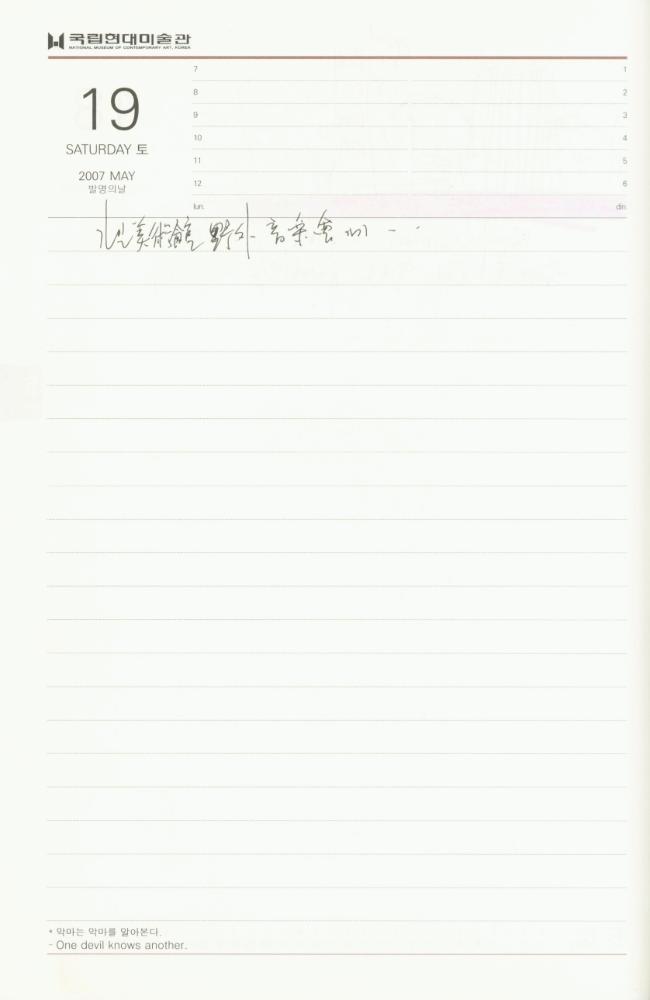 국립현대미술관
NATIONAL MUSEUM OF CONTEMPORARY ART, KOREA
19
SATURDAY 토
2007 MAY
발명의날
7 1
8 2
9 3
10 4
11 5
12 6
lun. din.
美術館 野外 音樂會
* 악마는 악마를 알아본다.
- One devil knows another.